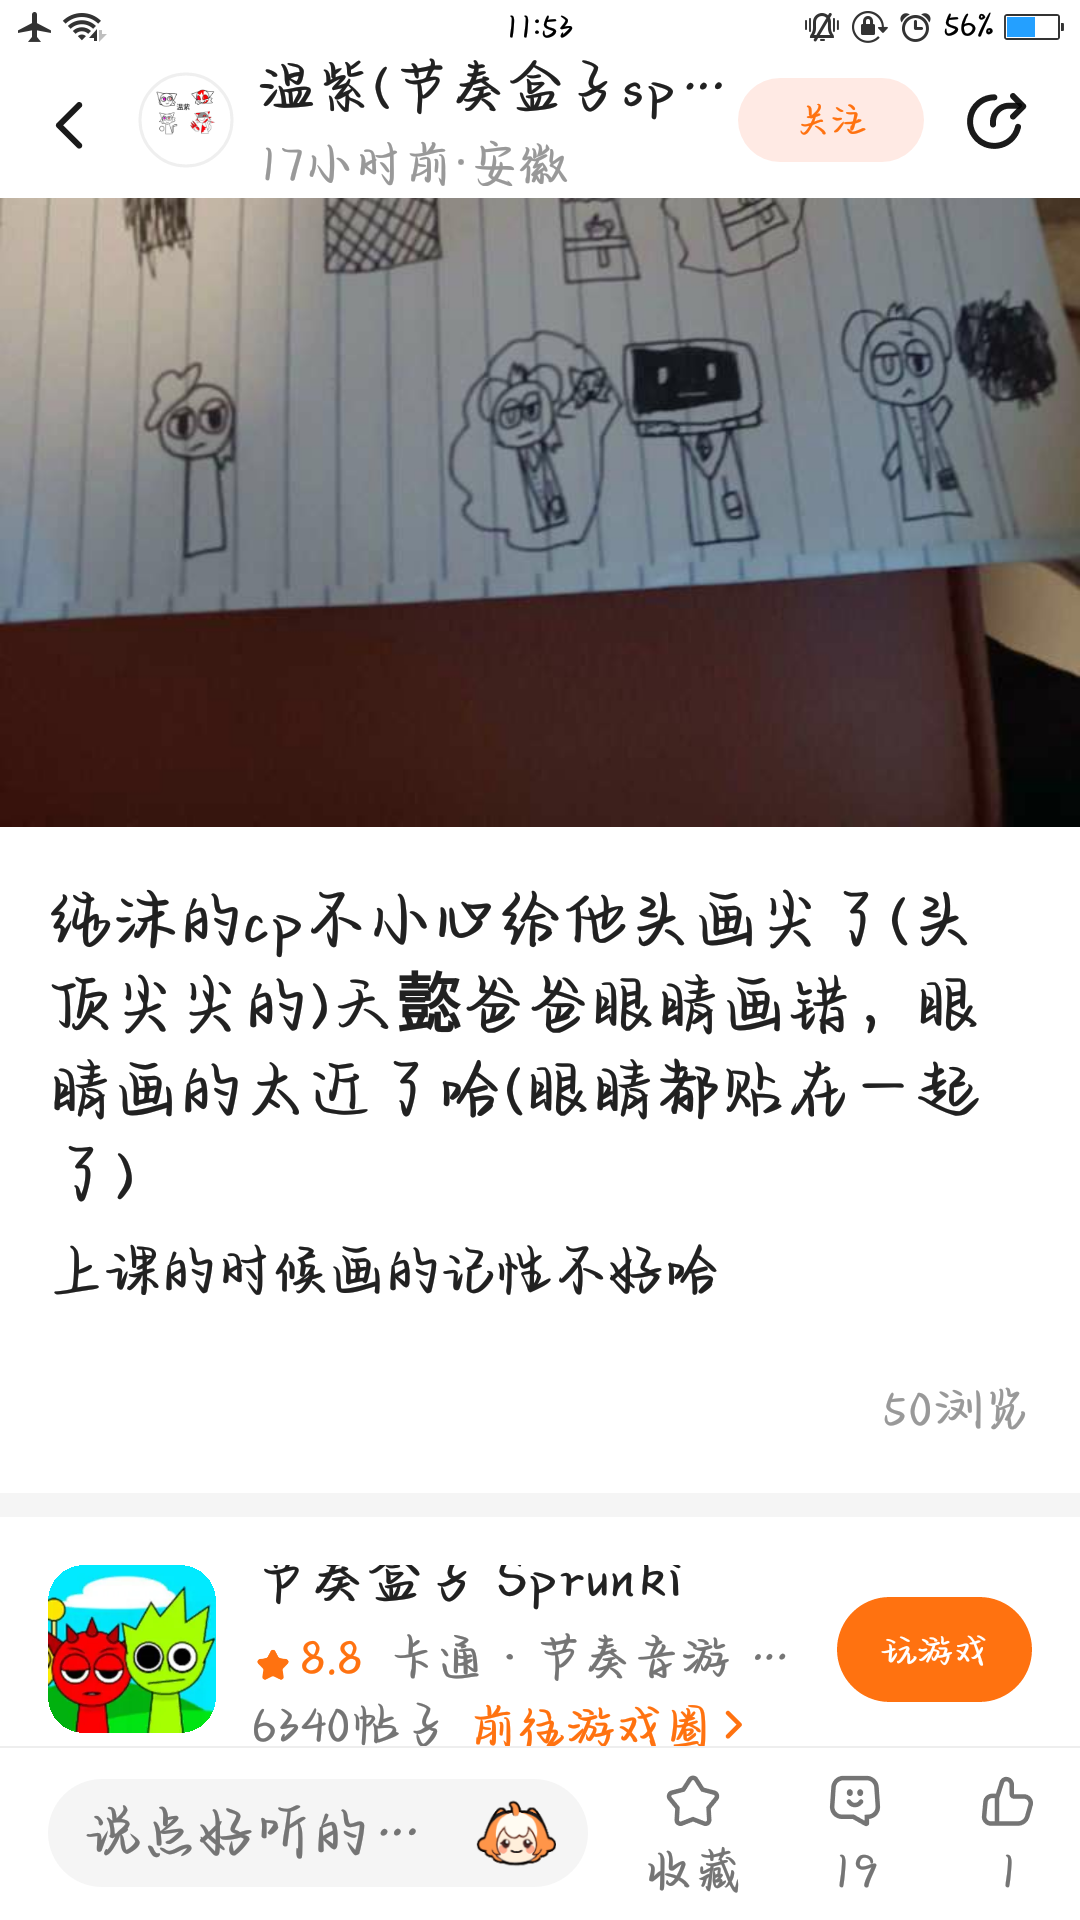 11:53
56%
温紫(节奏盒子sp…
17小时前·安徽
关注
温紫
纯沫的cp不小心给他头画尖了(头
顶尖尖的)天懿爸爸眼睛画错，眼
睛画的太近了哈(眼睛都贴在一起
了)
上课的时候画的记性不好哈
50浏览
节奏盒子 Sprunki
8.8 卡通 · 节奏音游 …
6340帖子 前往游戏圈
玩游戏
说点好听的…
收藏
19
1